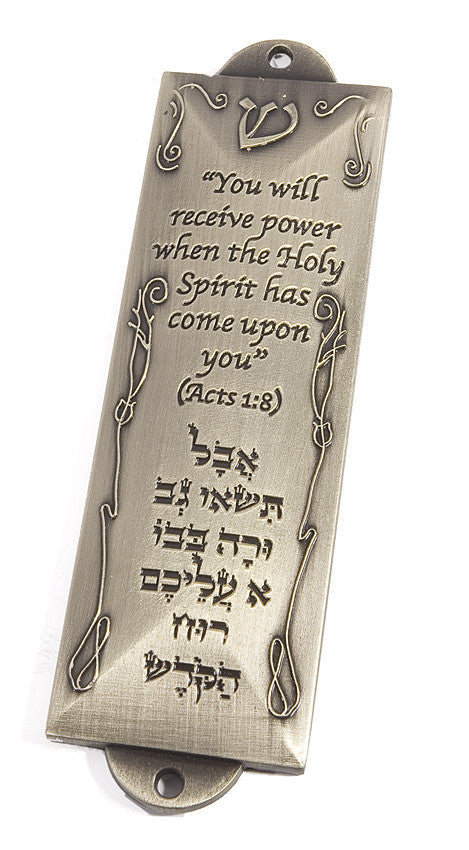 ש
“You will
receive power
when the Holy
Spirit has
come upon
you”
(Acts 1:8)
אֲבָל
תִּשְׂאוּ גְב
וּרָה בְּבוֹ
א עֲלֵיכֶם
רוּחַ
הַקֹּדֶשׁ